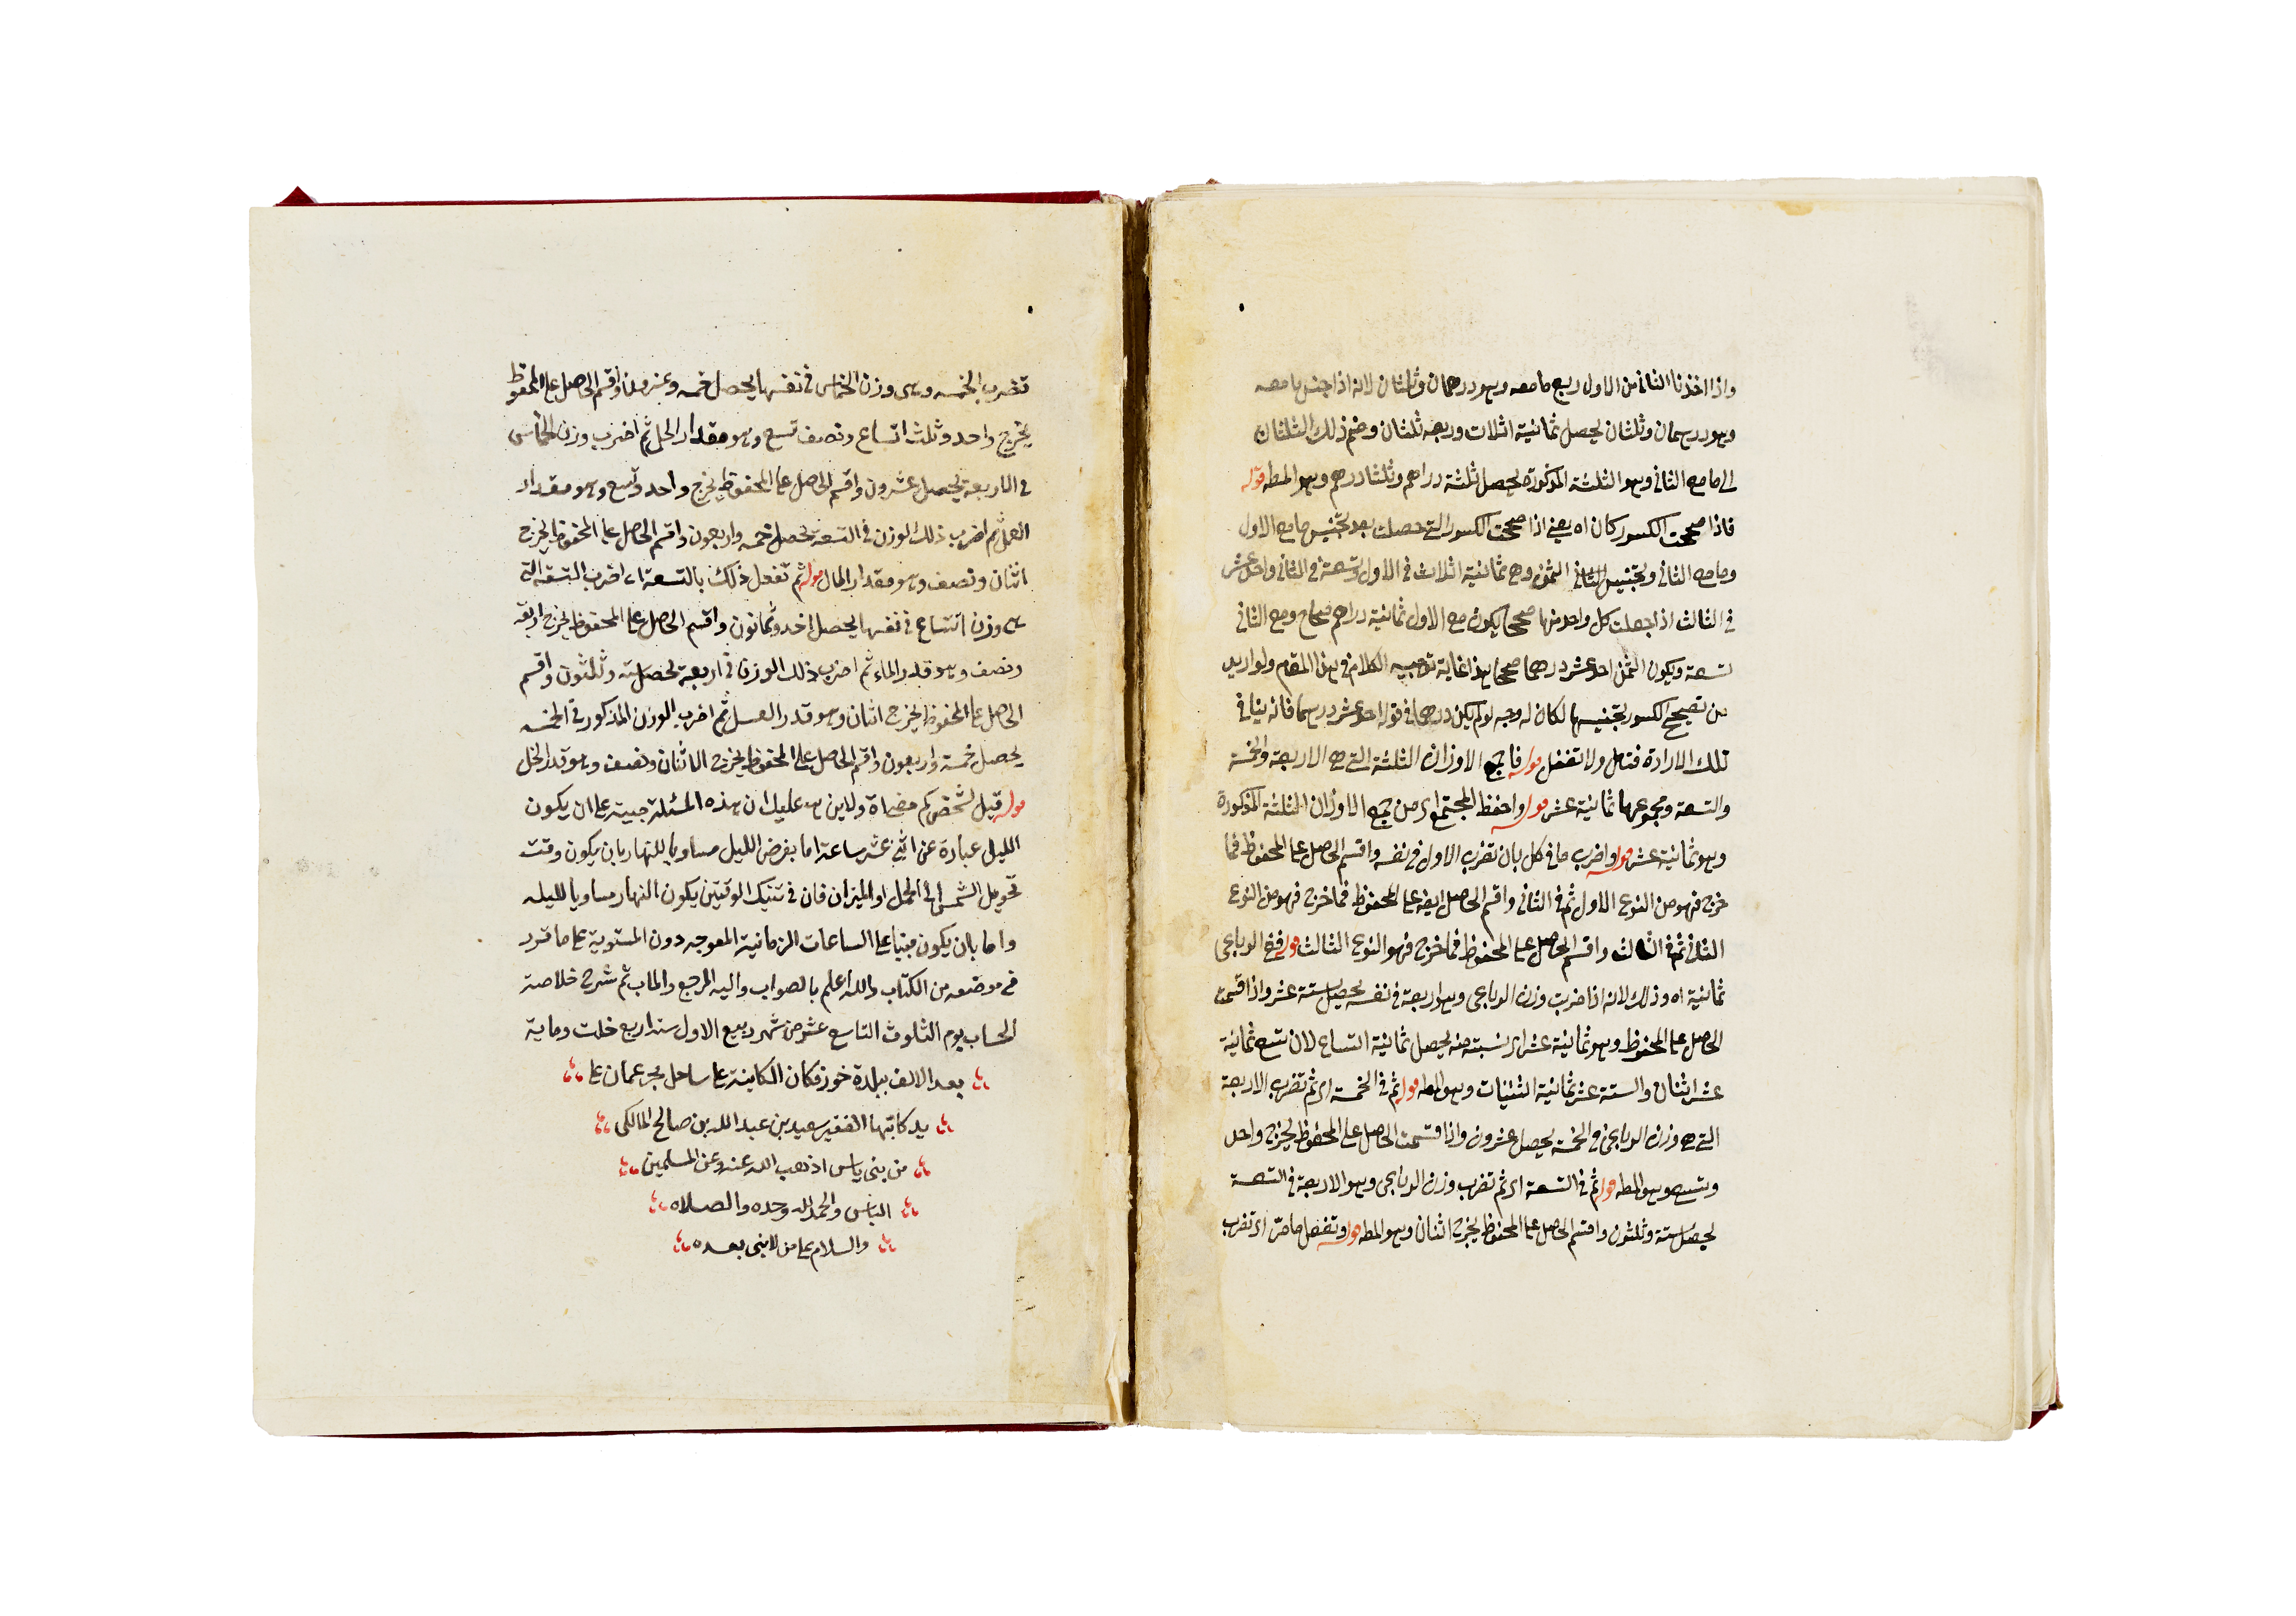 واذا اخذنا الثانى من الاول ربع ما معه وهو درهمان وثلثان لانه اذا جنس ما معه
وهو درهمان وثلثان يحصل ثمانية اثلاث وربعه ثلثان وضم ذلك الثلثان
الى ما مع الثانى وهو الثلثة المذكورة يحصل ثلثة دراهم وثلثا درهم وهو المط قوله
فاذا صححت الكسور كان اه يعنى اذا صححت الكسور التى حصلت بعد تجنيس ما مع الاول
وما مع الثانى وتجنيس الثمن وهى ثمانية اثلاث فى الاول وتسعة فى الثانى واحد عشر
فى الثالث اذا جعلت كل واحد منها صحيحا يكون مع الاول ثمانية دراهم صحاح ومع الثانى
تسعة ويكون الثمن احد عشر درهما صحاحا هذا غاية توجيه الكلام فى هذا المقام ولو اريد
من تصحيح الكسور تجنيسها لكان له وجه لو لم يكن درهما فى قوله احد عشر درهما فانه ينافى
تلك الارادة فتامل ولا تغفل قوله فاجمع الاوزان الثلثة التى هى الاربعة والخمسة
والتسعة ومجموعها ثمانية عشر قوله واحفظ المجتمع اى من جمع الاوزان الثلثة المذكورة
وهو ثمانية عشر قوله واضرب ما فى كل بان تضرب الاول فى نفسه واقسم الحاصل على المحفوظ فما
خرج فهو من النوع الاول ثم فى الثانى واقسم الحاصل ايضا على المحفوظ فما خرج فهو من النوع
الثانى ثم فى الثالث واقسم الحاصل على المحفوظ فما خرج فهو النوع الثالث قوله ففى الرباعى
ثمانية اه وذلك لانه اذا ضربت وزن الرباعى وهو اربعة فى نفسه يحصل ستة عشر واذا قسمت
الحاصل على المحفوظ وهو ثمانية عشر اى نسبته منه يحصل ثمانية اتساع لان تسع ثمانية
عشر اثنان والستة عشر ثمانية اثنينات وهو المط قوله ثم فى الخمسة اى ثم تضرب الاربعة
التى هى وزن الرباعى فى الخمسة يحصل عشرون واذا قسمت الحاصل على المحفوظ يخرج واحد
وتسع وهو المط قوله ثم فى التسعة اى ثم تضرب وزن الرباعى وهو الاربعة فى التسعة
يحصل ستة وثلثون واقسم الحاصل على المحفوظ يخرج اثنان وهو المط قوله وتفعل ما مر اى تضرب
تضرب الخمسة وهى وزن الخماسى فى نفسها يحصل خمسة وعشرون واقسم الحاصل على المحفوظ
يخرج واحد وثلث اتساع ونصف تسع وهو مقدار الخل ثم اضرب وزن الخماسى
فى الاربعة يحصل عشرون واقسم الحاصل على المحفوظ يخرج واحد وتسع وهو مقدار
العسل ثم اضرب ذلك الوزن فى التسعة يحصل خمسة واربعون واقسم الحاصل على المحفوظ يخرج
اثنان ونصف وهو مقدار الماء قوله ثم تفعل ذلك بالتسعة اى اضرب التسعة التى
هى وزن التساعى فى نفسها يحصل احد وثمانون واقسم الحاصل على المحفوظ يخرج اربعة
ونصف وهو قدر الماء ثم اضرب ذلك الوزن فى اربعة يحصل ستة وثلثون واقسم
الحاصل على المحفوظ يخرج اثنان وهو قدر العسل ثم اضرب الوزن المذكور فى الخمسة
يحصل خمسة واربعون واقسم الحاصل على المحفوظ يخرج الاثنان ونصف وهو قدر الخل
قوله قيل لشخص كم مضى اه ولا يذهب عليك ان هذه المسئلة مبنية على ان يكون
الليل عبارة عن اثنى عشر ساعة اما بفرض الليل مساويا للنهار بان يكون وقت
تحويل الشمس الى الحمل او الميزان فان فى تنيك الوقتين يكون النهار مساويا لليله
واما بان يكون مبنيا على الساعات الزمانية المعوجه دون المستوية على ما قرر
فى موضعه من الكتاب والله اعلم بالصواب واليه المرجع والماب ثم شرح خلاصة
الحساب يوم الثلوث التاسع عشر من شهر ربيع الاول سنة اربع خلت وماية
بعد الالف ببلدة خورفكان الكاينة على ساحل بحر عمان على
يد كاتبها الفقير سعيد بن عبد الله بن صالح المالكى
من بنى ياس اذهب الله عنه وعن المسلمين
الباس والحمد لله وحده والصلاه
والسلام على من لا نبى بعده